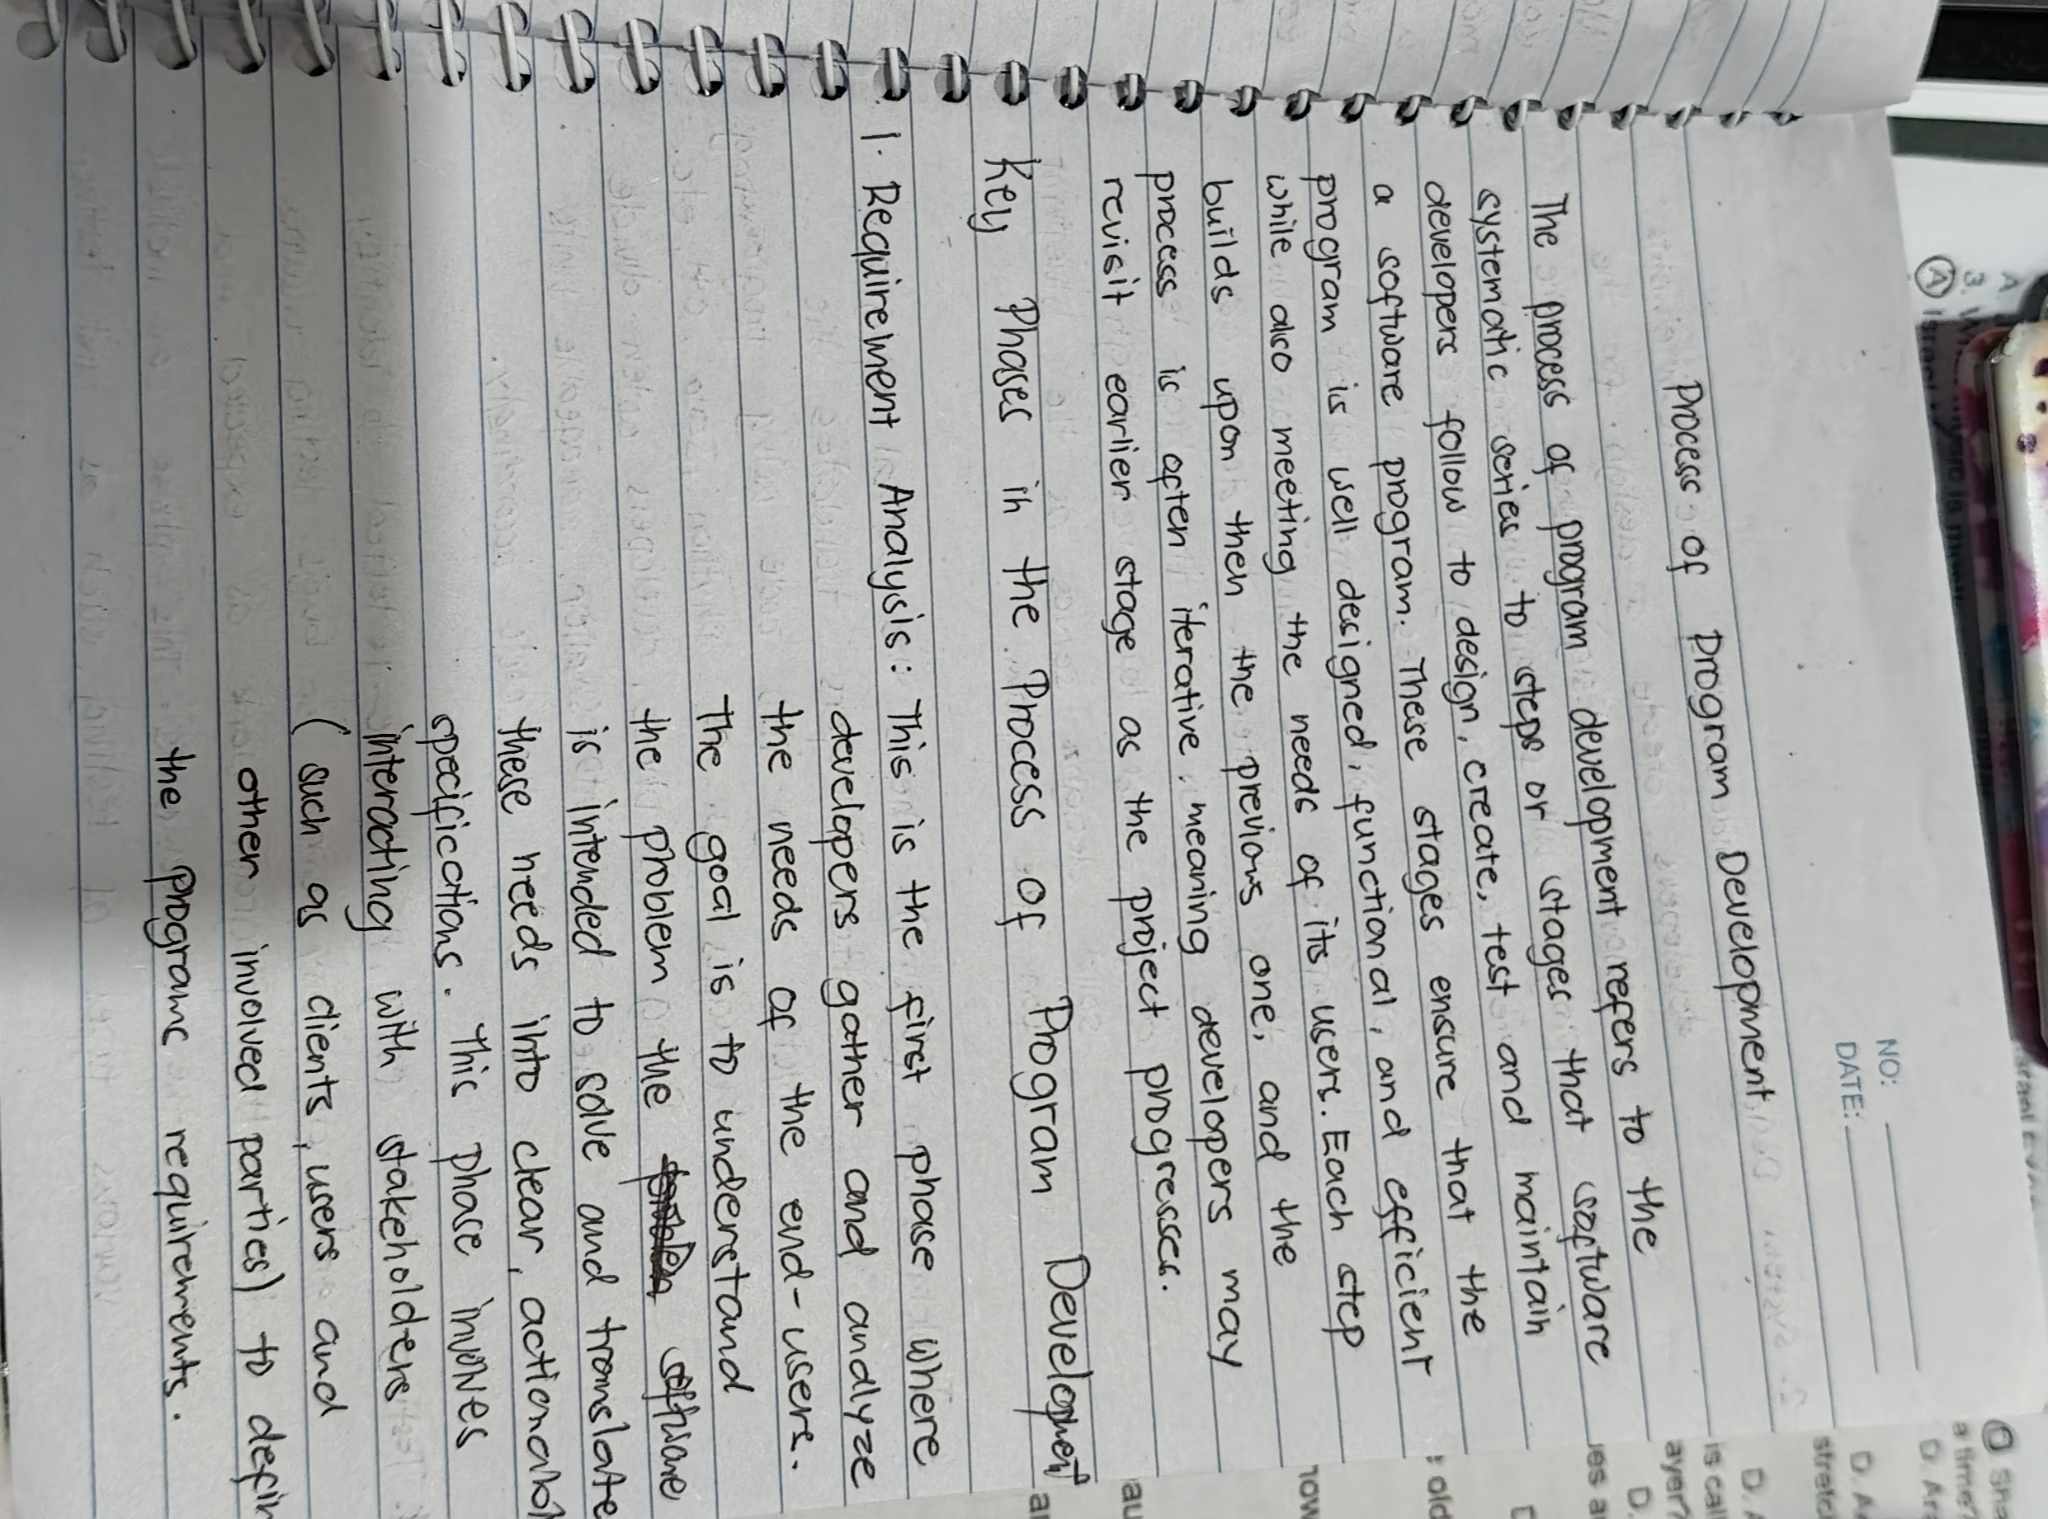 NO:
DATE:
Process of Program Development
The process of program development refers to the
systematic series to steps or stages that software
developers follow to design, create, test and maintain
a software program. These stages ensure that the
program is well designed, functional, and efficient
while also meeting the needs of its users. Each step
builds upon then the previous one, and the
process is often iterative, meaning developers may
revisit earlier stage as the project progresses.
Key Phases in the Process of Program Development
1. Requirement Analysis: This is the first phase where
developers gather and analyze
the needs of the end-users.
The goal is to understand
the problem the software
is intended to solve and translate
these needs into clear, actionabl
specifications. This phase involves
interacting with stakeholders
(such as clients, users and
other involved parties) to defin
the programs requirements.